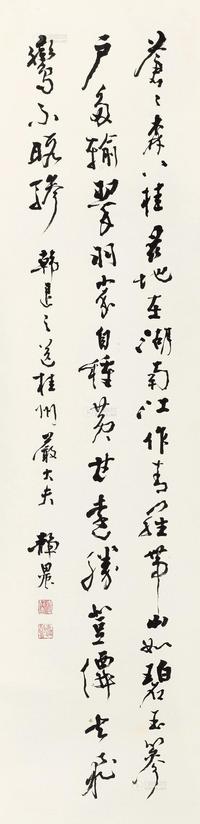 蒼々森八桂茲地在湖南江作青羅帶山如碧玉篸
戶多輸翠羽家自種黃甘遠勝登僊去飛
鸞不暇驂 韓退之送桂州嚴大夫